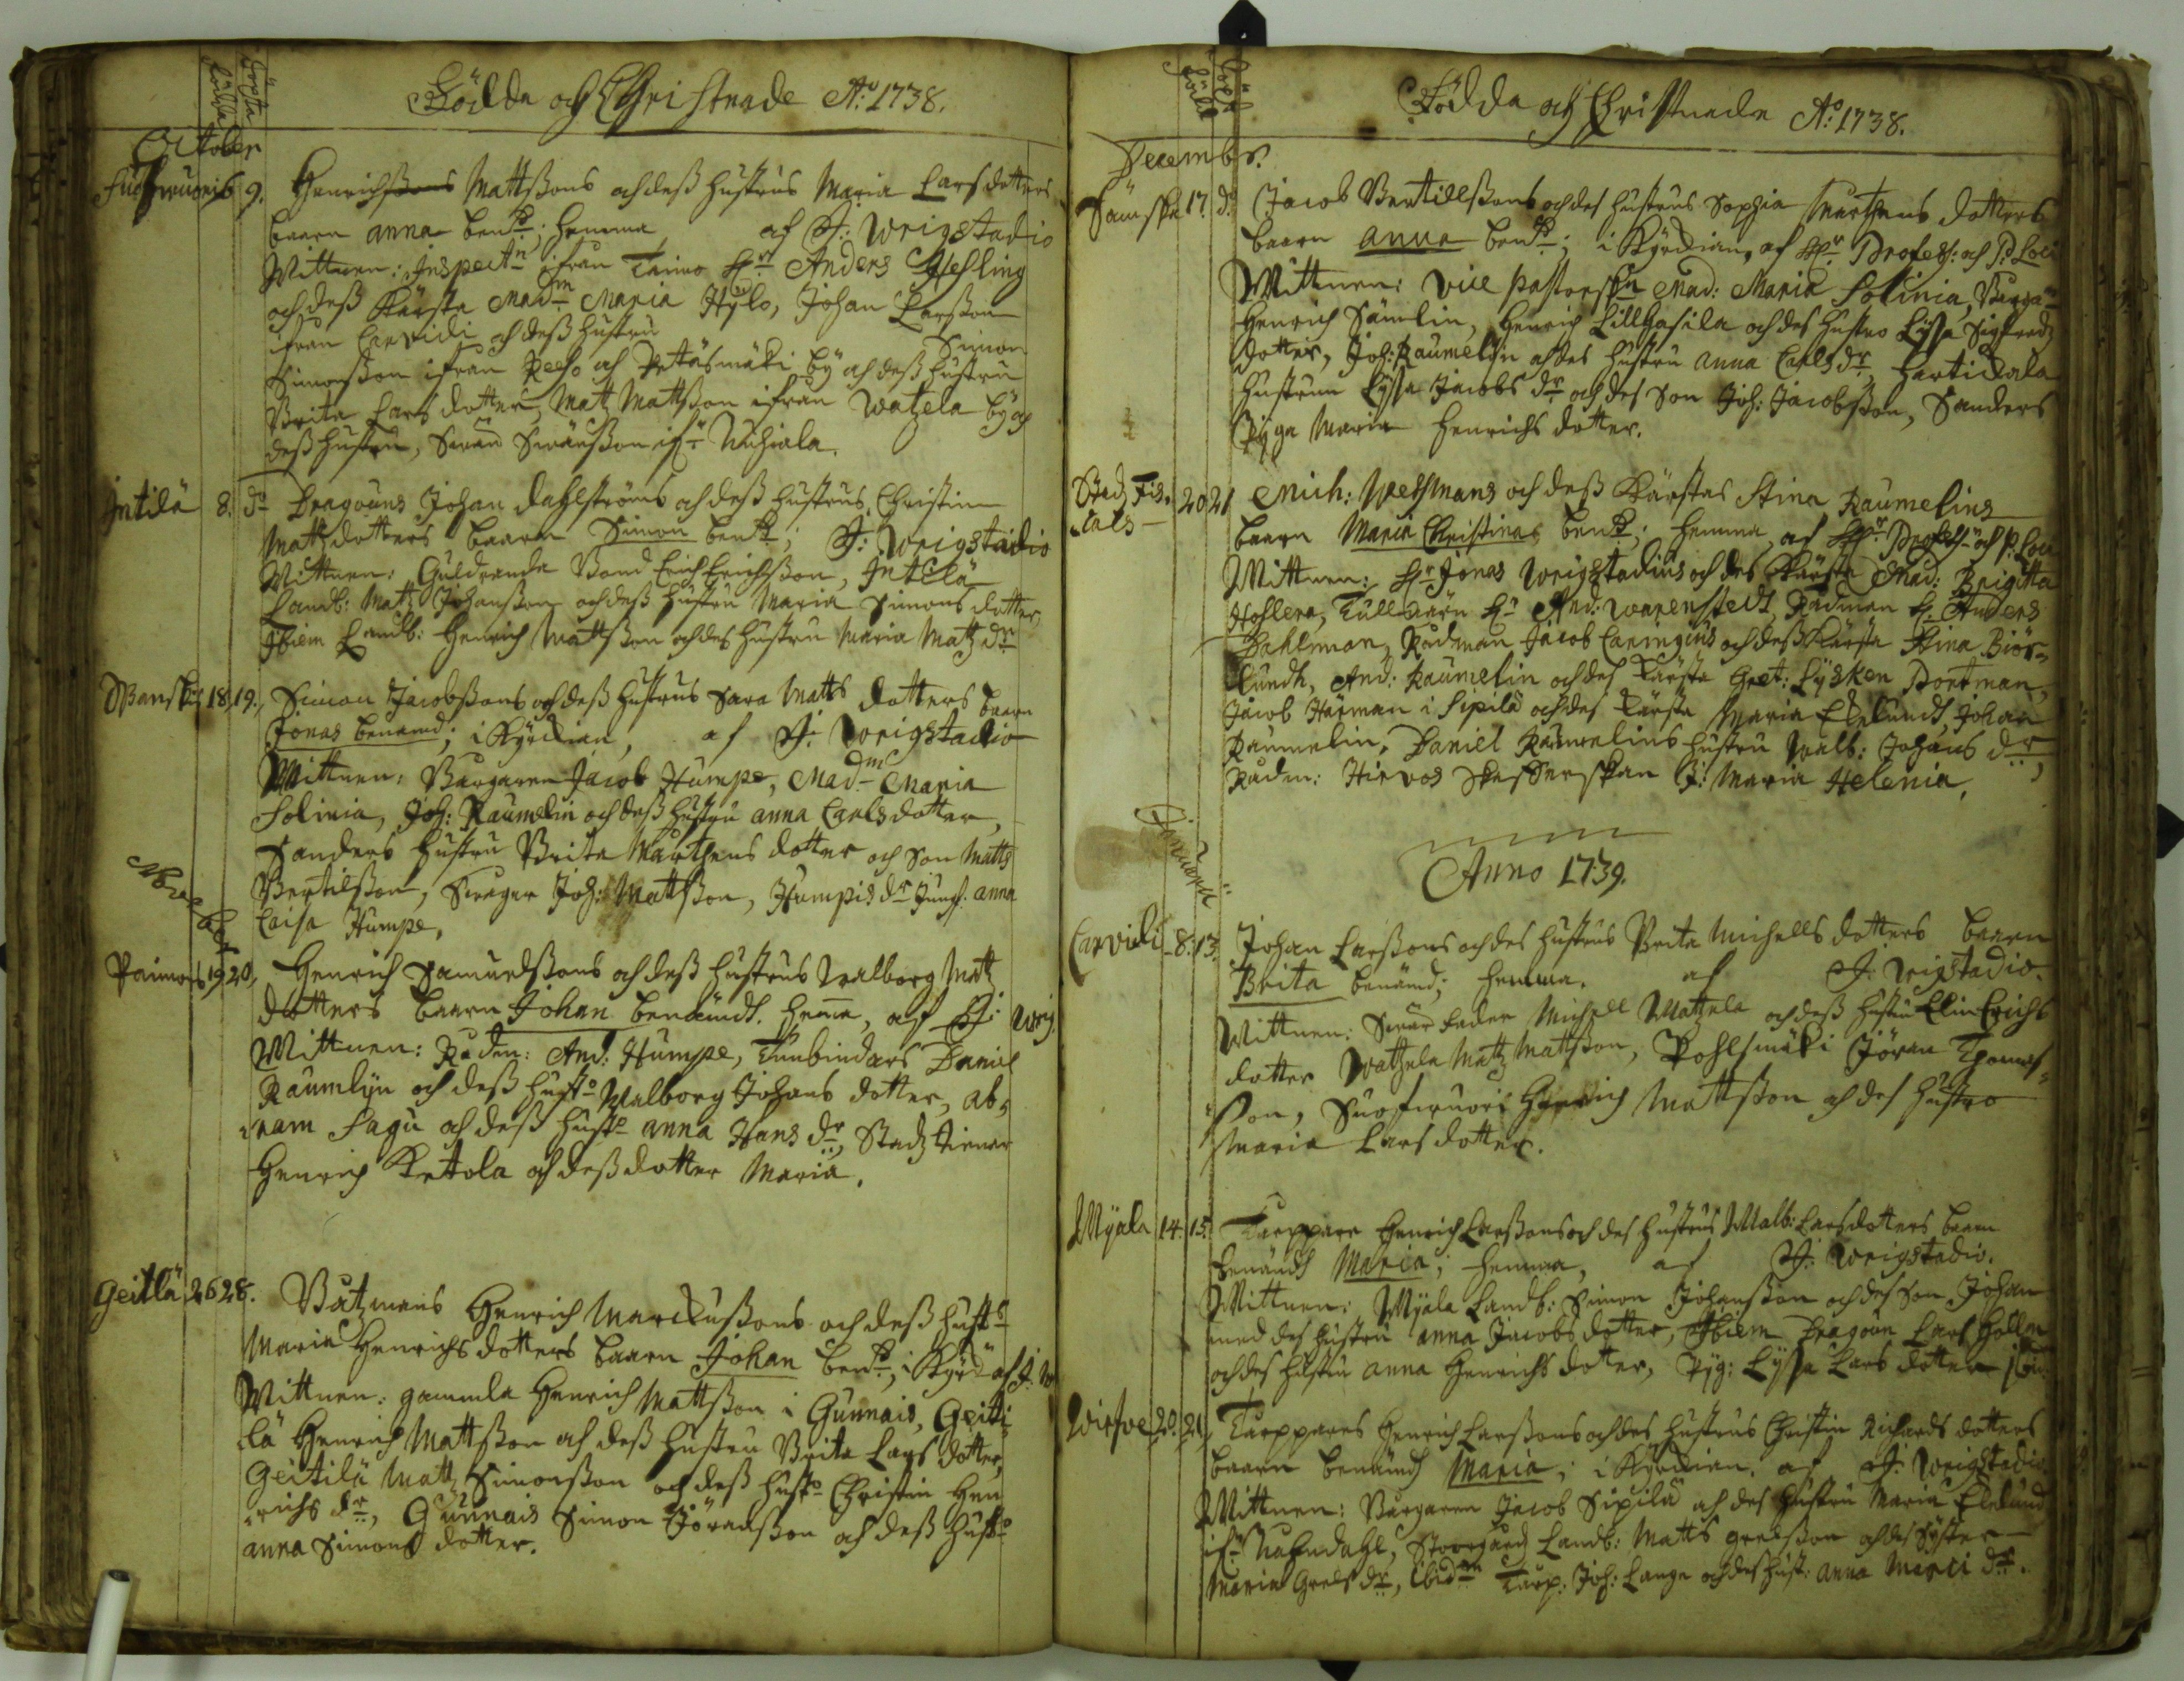 Födda Döpta
Födda och Christnade Ao: 1738.
October
6 9. Henrich Mattßons och deß hustrus Maria Larsdotters
baarn anna ben:d; hemma af J: Wrigstadio
Wittnen: Inspectn ifrån Taimo Hr Anders Hesling
och deß Kärsta Mad:m Maria Hylo, Johan Larsson
ifrån Carvidi och deß hustru Simon
Simonsson ifrån och Petäsmäki by och deß hustru
Brita Larsdotter, Matz Mattßon ifrån Watzela by och
deß hustru,
Intilä 8. do Dragouns Johan Dahlströms och deß hustrus Christin
Matzdotters baarn Simon ben:d; J: Wrigstadio
Wittnen: Guldranda Bond Erich Erichßon, Intilä
Landb: Matz Johanßon och deß hustru Maria Simons dotter
Ibiem Landb: Henrich Mattßon och des hustru Maria Matz dr
18. 19. Simon Jacobßons och deß hustrus Sara Matts dotters baarn
Jonas benämd; i Kyrckian, af J: Wrigstadio
Wittnen: Borgaren Jacob Humpe, Mad:m Maria
Solinia, Joh: Raumelin och deß hustru anna Carlsdotter,
Sanders hustru Brita Mårthens dotter och son Matts
Bertilßon, Joh: Mattßon, Humpis dr Jungf. anna
Caisa Humpe,
November
Paimais 19 20, Henrich Samuelßons och deß hustrus Walborg Matz
dotters baarn Johan benämdt. hema, af J: Wrig.
Wittnen: Rådm: And: Humpe, Tunbindars Daniel
Raumlyn och deß hust:o Walborg Johans dotter, Ab-
ram Sagu och deß hust:o anna Hans dr, Stadz tienar
Henrich Ketola och deß dotter Maria.
Geitlä 26 28. Båtzmans Henrich Marckußons och deß hust:s
Maria Henrichs dotters baarn Johan ben:d, i Kyrck: af J: W
Wittnen: gammla Henrich Mattßon i Gunnais, Geiti-
lä Henrich Mattßon och deß hustru Brita Lars dotter,
Geitilä Matz Simonsson och deß hust:o Christin Hen
richs dr, Gunnais Simon Jöranßon och deß hust:o
anna Simons dotter.
Födda och Christnade Ao: 1738.
Decembr.
17. do Jacob Bertillßons och des hustrus Sophia Mårthens dotters
baarn anna ben:d; i Kyrckian, af Hr Profess: och P: Loci
Wittnen: Vice pastorskn Mad: Maria Solinia, Borgarn
Henrich Sämlin, Henrich Lillhasila och des hustro Lysa Sigfreds
dotter, Joh: Raumelin och des hustru anna Carls dr, Hartikala
hustrun Lysa Jacobs dr och des Son Joh: Jacobßon, Sanders
Pyga Maria Henrichs dotter.
Stadz Fis-
cals 20 21 Mich: Westmans och deß Kärstas Stina Raumelins
baarn Maria Christina ben:d; hemma, af Hr Profess: och P: Loci
Wittnen: Hr Jonas Wrigstadius och des Kärsta Mad: Brigitta
Hoslera, Tullnärn Hr And: Warenstedt Rådman H. Anders
Dahlman, Rådman Jacob Caringius och deß Kärsta Stina Biör-
lundh, And: Raumelin och des Kärsta Gret: Lysken Portman,
Jacob Härman i Sipilä och des Kärsta Maria Ekelundh, Johan
Raumelin, Daniel Raumelins hustru Walb: Johans dr,
Rådm: Hirvos J: Maria Helenia.
Januarii
Anno 1739.
Carvidi 8. 13. Johan Larßons och des hustrus Brita Michells dotters baarn
Brita benämd; hemma. af J: Wrigstadio.
Wittnen: Michell Watzela och deß hustru Elin Erichs
dotter Watzela Matz Mattßon, Pohlsmäki Jöran Thomas-
ßon, Henrich Mattßon och des hustro
Maria Lars dotter.
Myala 14. 15. Torppare Henrich Larßons och des hustrus Walb: Larsdotters baarn
benämdh Maria; hemma, af J: Wrigstadio.
Wittnen: Myala Landb: Simon Johanßon och des Son Johan
med des hustru anna Jacobs dotter, Ibiem Dragoun Lars Hollm
och des hustru anna Henrichs dotter, Pyg: Lyssa Lars dotter
20. 21, Torppares Henrich Larßons och des hustrus Christin Richards dotters
baarn benämdh Maria; i Kyrckian. af J: Wrigstadio
Wittnen: Borgaren Jacob Sipilä och des hustru Maria Ekelund
ifr: Nådendahl, Storgård Landb: Matts grelsßon och des Syster
Maria Grels dr, ibid:m Torp: Joh: Lange och des hust: anna Marci dr.